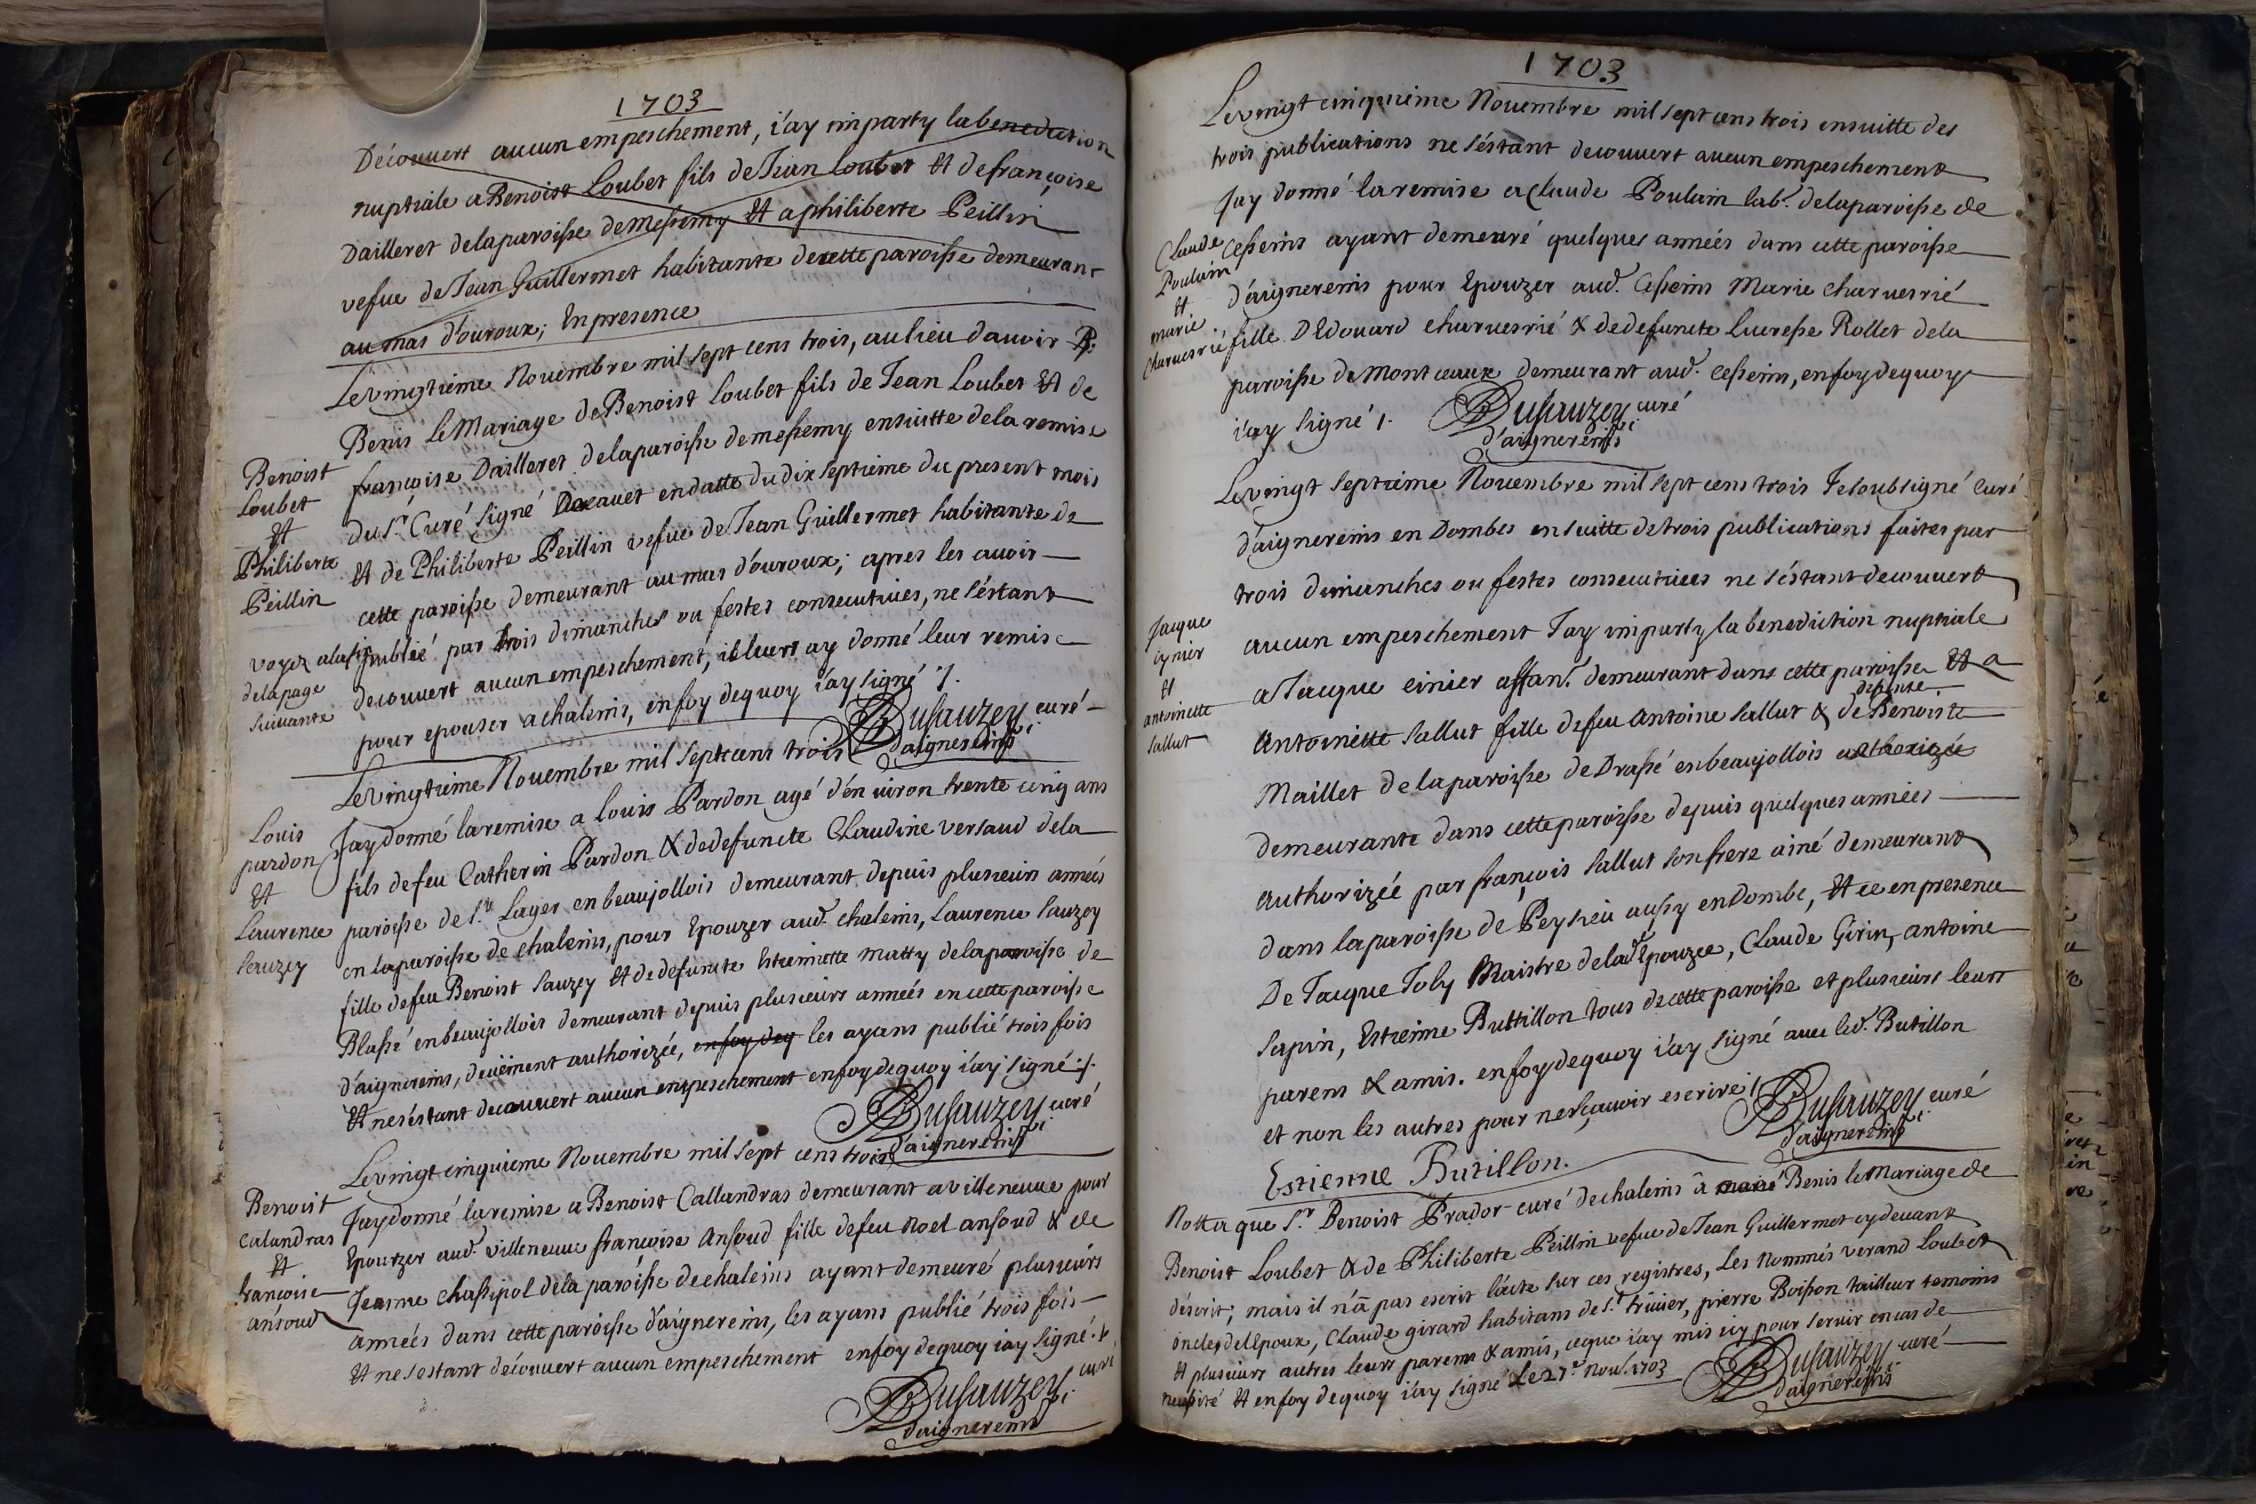 1703
Découvert aucun empeschement, i'ay imparty la benediction
nuptiale a Benoist Loubet fils de Jean Loubet Et de françoise
Dailleret de la paroisse de Messimy Et a philiberte Peillin
vefue de Jean Guillermet habitante de cette paroisse demeurant
au mas d'ouroux; En presence
Le vingtieme Nouembre mil sept cens trois, au lieu d'auoir
Benis Le Mariage de Benoist Loubet fils de Jean Loubet Et de
françoise Dailleret de la paroisse de messemy ensuitte de la remise
du Sr. Curé signé en datte du dix septieme du present mois
Et de Philiberte Peillin vefue de Jean Guillermet habitante de
cette paroisse demeurant au mas d'ouroux; apres les auoir
publié par trois dimanches ou festes consecutiues, ne s'éstant
découvert aucun empeschement, ie leurs ay donné leur remise
pour epouser a chaleins, en foy dequoy i'ay signé /.
Dusauzey curé
d'aignereins
Benoist
Loubet
Et
Philiberte
Peillin
voyez a la fin
de la page
suiuante
Le vingtieme Nouembre mil sept cens trois
J'ay donné la remise a Louis Pardon agé d'én uiron trente cinq ans
fils de feu Catherin Pardon & de defuncte Claudine versaud de la
paroisse de St. Lager en beaujollois demeurant depuis plusieurs années
en la paroisse de chaleins, pour Epouzer aud. chaleins, Laurence sauzey
fille de feu Benoist sauzey Et de defuncte Estiennette matty de la paroisse de
Blassé en beaujollois demeurant depuis plusieurs années en cette paroisse
d'aignereins, deüëment authorizée, en foy deq les ayans publié trois fois
Et ne s'éstant decouuert aucun empeschement en foy dequoy i'ay signé /.
Dusauzey curé
d'aignereins
Louis
pardon
Et
Laurence
sauzey
Le vingt cinquieme Nouembre mil sept cens trois
J'ay donné la remise a Benoist Callandras demeurant a villeneuue pour
Epouzer aud. villeneuue françoise Ansoud fille de feu Noel ansoud & de
Jeanne chassipol de la paroisse de chaleins ayant demeuré plusieurs
années dans cette paroisse d'aignereins, les ayans publié trois fois
Et ne s'estant découvert aucun empeschement en foy dequoy i'ay signé /.
Dusauzey curé
d'aignereins
Benoist
calandras
Et
françoise
ansoud
1703
Le vingt cinquieme Nouembre mil sept cens trois ensuitte des
trois publications ne s'éstant decouuert aucun empeschement
J'ay donné la remise a Claude Poulain lab. de la paroisse de
Cesseins ayant demeuré quelques années dans cette paroisse
d'aignereins pour Epouzer aud. Cesseins Marie charuesrié
fille D'Edouard charuesrié & de defuncte Lucresse Rollet de la
paroisse de Montceaux demeurant aud. cesseins, en foy dequoy
i'ay signé /.
Dusauzey curé
d'aignereins
Claude
Poulain
Et
marie
Charuesrié
Le vingt septieme Nouembre mil sept cens trois Je soubsigné Curé
d'aignereins en Dombes ensuitte de trois publications faites par
trois dimanches ou festes consecutiues ne s'éstant decouuert
aucun empeschement J'ay imparty la benediction nuptiale
a Jacque einier affant. demeurant dans cette paroisse Et a
Antoinette sallut fille de feu Antoine sallut & de defunte Benoiste
Maillet de la paroisse de Drassé en beaujollois authorizée
demeurante dans cette paroisse depuis quelques années
authorizée par françois sallut son frere ainé demeurant
dans la paroisse de Peysieu aussy en Dombe, Et ce en presence
De Jacque Joly Maistre de lad. Epouzee, Claude Girin, antoine
sapin, Estienne Buttillon tous de cette paroisse et plusieurs leurs
parens & amis. en foy dequoy i'ay signé auec led. Butillon
et non les autres pour ne sçauoir escrire /.
Dusauzey curé
d'aignereins
Estienne Butillon.
Jacque
eynier
Et
antoinette
sallut
Notta que Sr. Benoist Prador curé de chaleins â Benis le Mariage de
Benoist Loubet & de Philiberte Peillin vefue de Jean Guillermet cy deuant
déscrit; mais il n'a pas escrit l'acte sur ces registres, Les Nommés verand Loubet
oncles de l'Epoux, Claude girard habitans de St. triuier, pierre Boisson tailleur temoins
Et plusieurs autres leurs parens & amis, ce que i'ay mis icy pour seruir en cas de
necessité Et en foy dequoy i'ay signé Le 27e. Nou. 1703
Dusauzey curé
d'aignereins